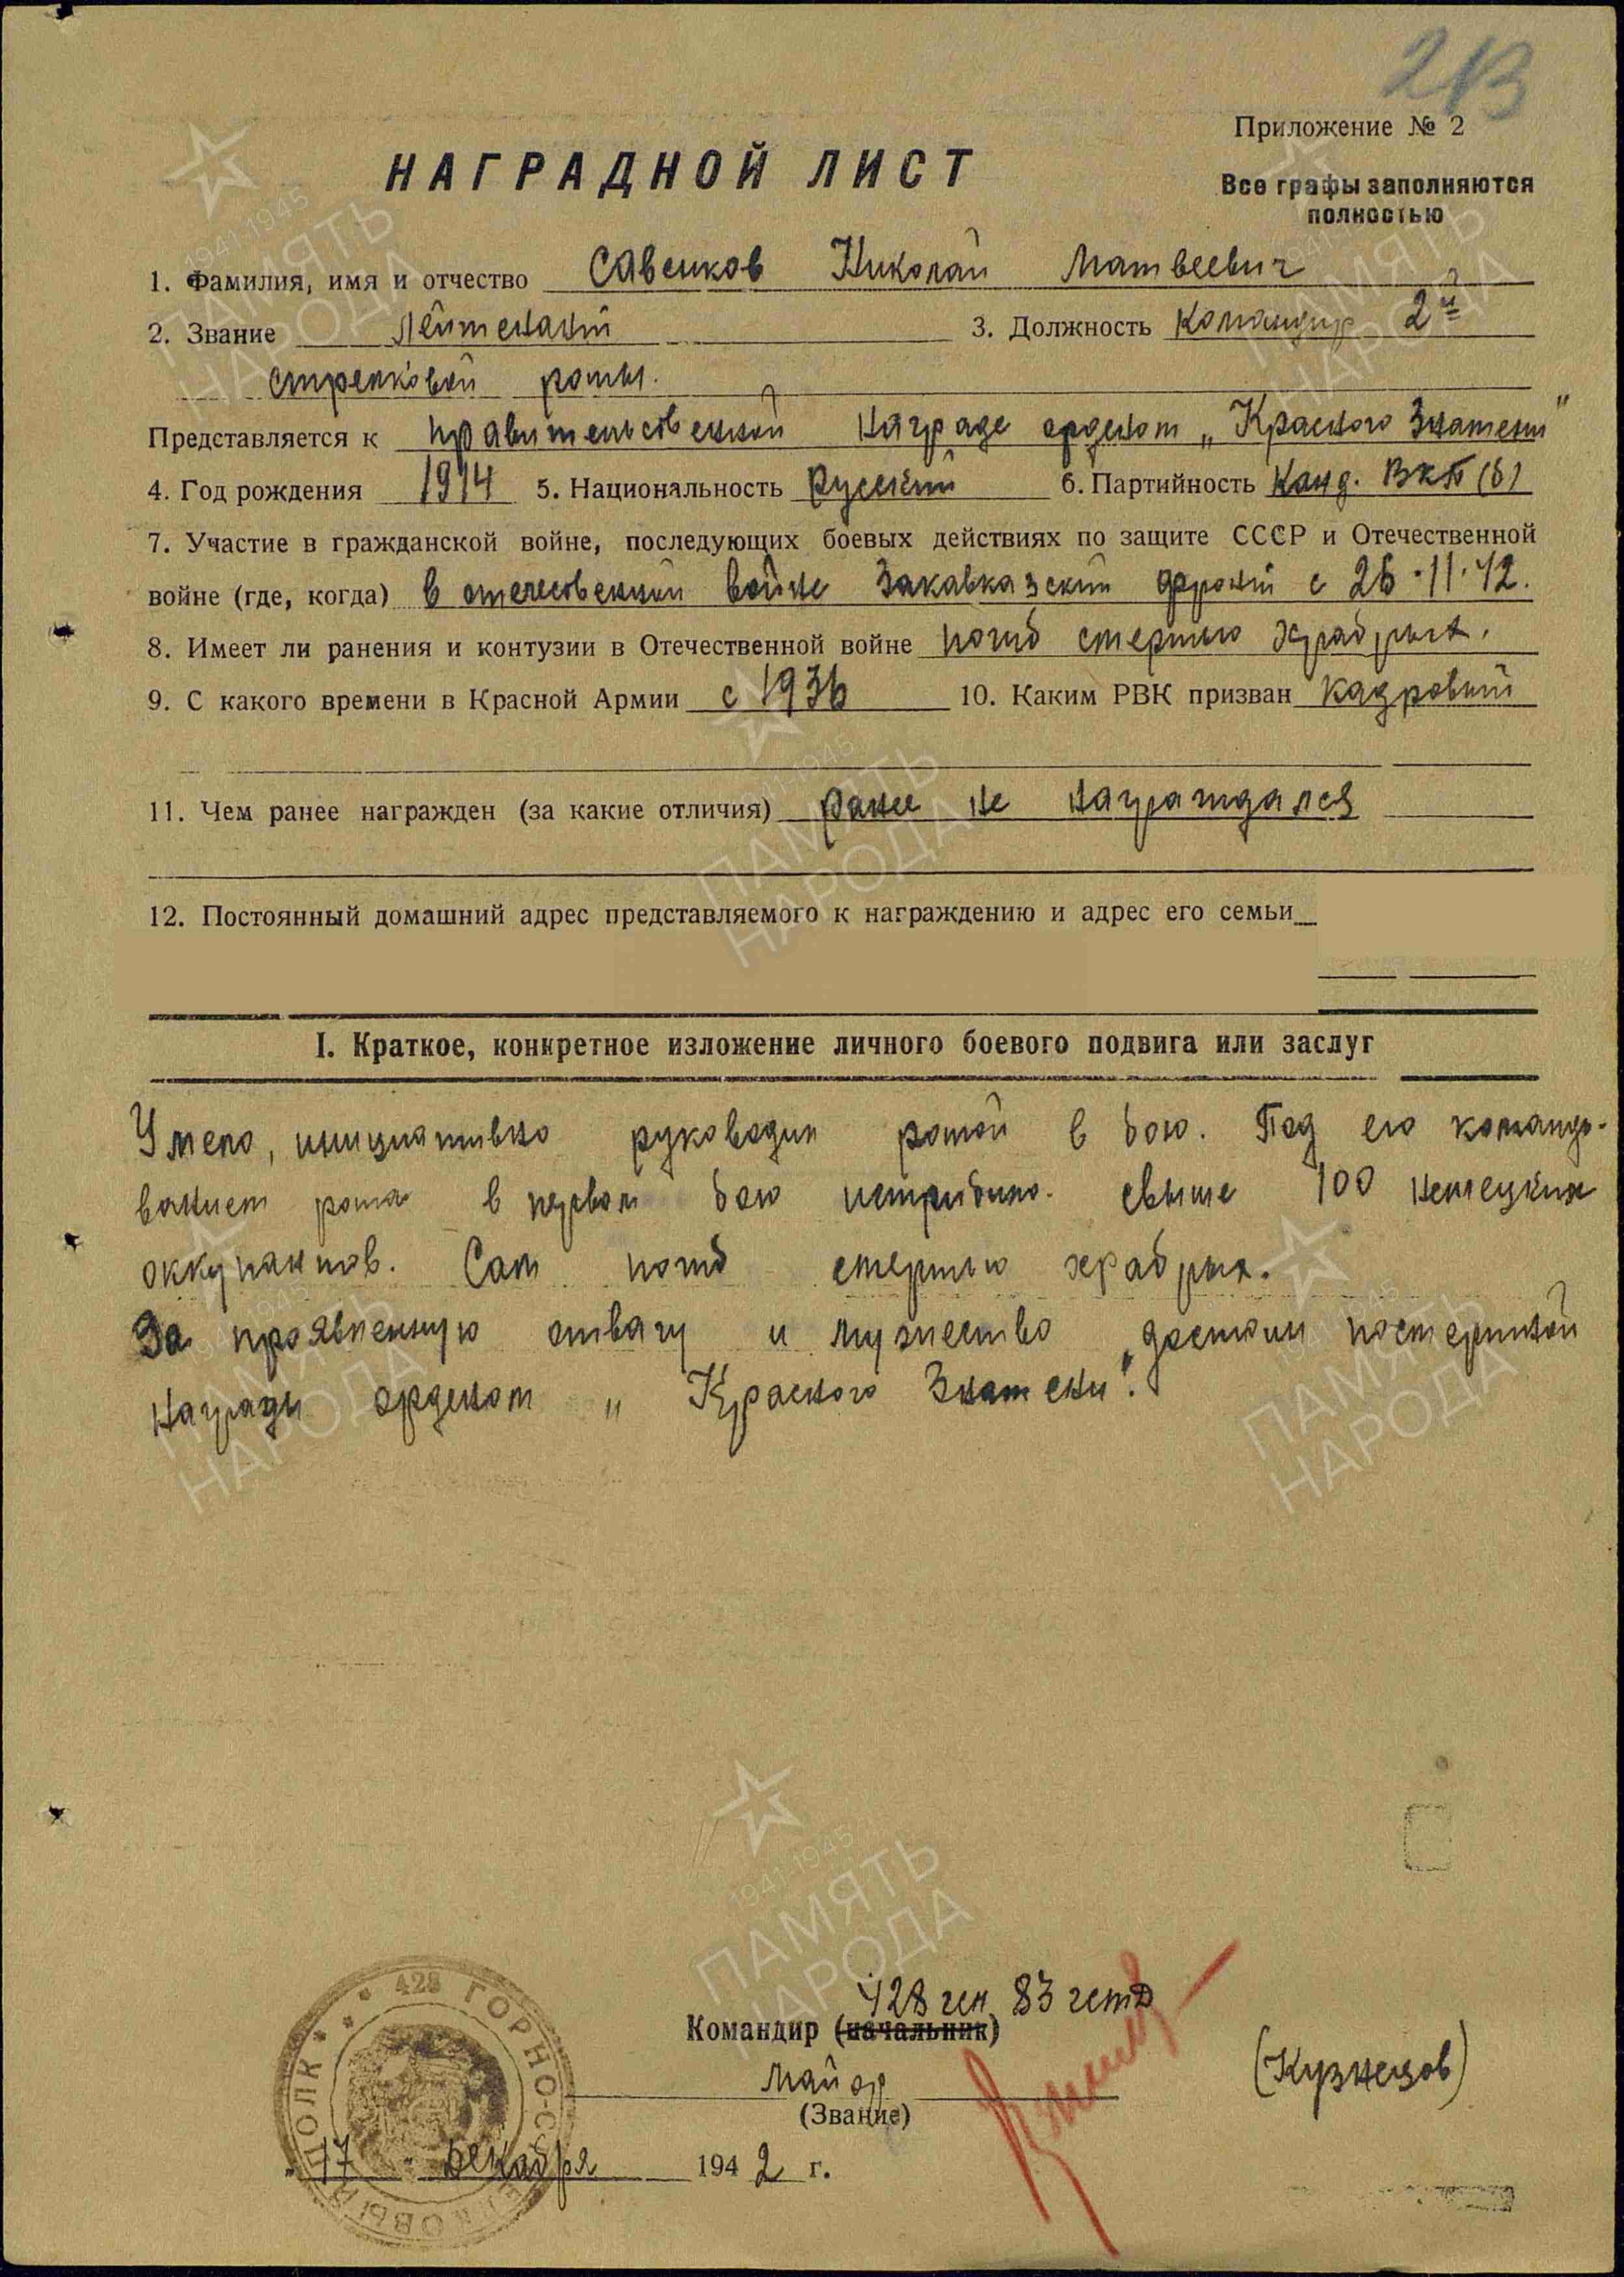 213
Приложение № 2
НАГРАДНОЙ ЛИСТ
Все графы заполняются
полностью
1. Фамилия, имя и отчество Савенков Николай Матвеевич
2. Звание Лейтенант 3. Должность Командир 2й
стрелковой роты.
Представляется к правительсвенной награде орденом „Красного Знамени"
4. Год рождения 1914 5. Национальность русский 6. Партийность Канд. ВКП(б)
7. Участие в гражданской войне, последующих боевых действиях по защите СССР и Отечественной
войне (где, когда) в отечесвенной войне Закавказский фронт с 26.11.42.
8. Имеет ли ранения и контузии в Отечественной войне погиб смертью храбрых.
9. С какого времени в Красной Армии с 1936 10. Каким РВК призван кадровый
11. Чем ранее награжден (за какие отличия) ранее не награждался
12. Постоянный домашний адрес представляемого к награждению и адрес его семьи
I. Краткое, конкретное изложение личного боевого подвига или заслуг
Умело, инициативно руководил ротой в бою. Под его командо-
ванием рота в первом бою истребила свыше 100 немецких
оккупантов. Сам погиб смертью храбрых.
За проявленную отвагу и мужество достоин посмертной
награды орденом „Красного Знамени".
428 гсп 83 гстд
Командир (начальник)
майор
(Звание)
(Кузнецов)
„17" декабря 1942 г.
428 ГОРНО-СТРЕЛКОВЫЙ ПОЛК
1941 1945
ПАМЯТЬ
НАРОДА